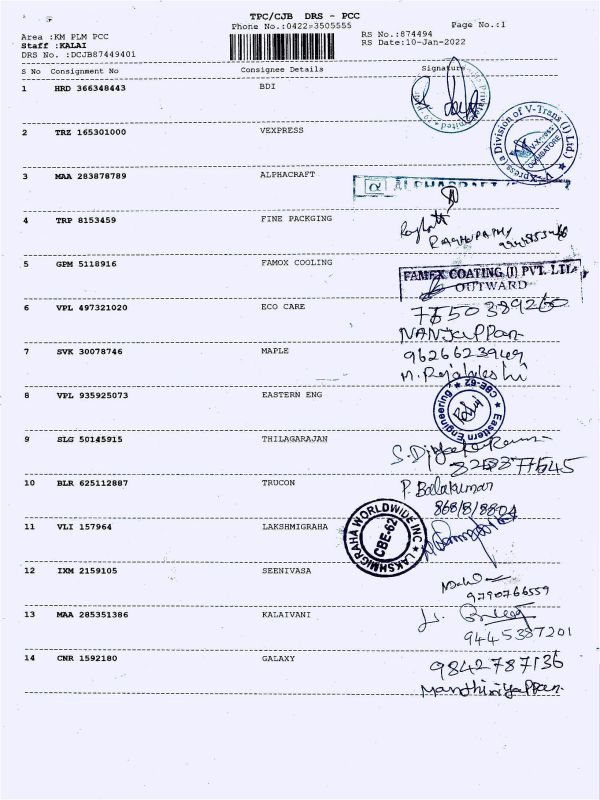 TPC/CJB DRS - PCC
Phone No.:0422-3505555
Page No.:1
Area :KM PLM PCC
Staff :KALAI
DRS No. :DCJB87449401
RS No.:874494
RS Date:10-Jan-2022
S No Consignment No Consignee Details Signature
1 HRD 366348443 BDI
2 TRZ 165301000 VEXPRESS
V-Xpress (a Division of V-Trans (I) Ltd.)
COIMBATORE
3 MAA 283878789 ALPHACRAFT
ALPHACRAFT
4 TRP 8153459 FINE PACKGING
RAGHUPATHY
5 GPM 5118916 FAMOX COOLING
FAMEX COATING (I) PVT. LTD.
OUTWARD
6 VPL 497321020 ECO CARE
NANJAPPAN
7 SVK 30078746 MAPLE
9626623949
M. Rajalakshi
8 VPL 935925073 EASTERN ENG
Eastern Engineering CBE-62
9 SLG 50145915 THILAGARAJAN
10 BLR 625112887 TRUCON
P. Balakumar
11 VLI 157964 LAKSHMIGRAHA
LAKSHMIGRAHA WORLDWIDE INC
CBE-62
12 IXM 2159105 SEENIVASA
9790766559
13 MAA 285351386 KALAIVANI
9445387201
14 CNR 1592180 GALAXY
9842787136